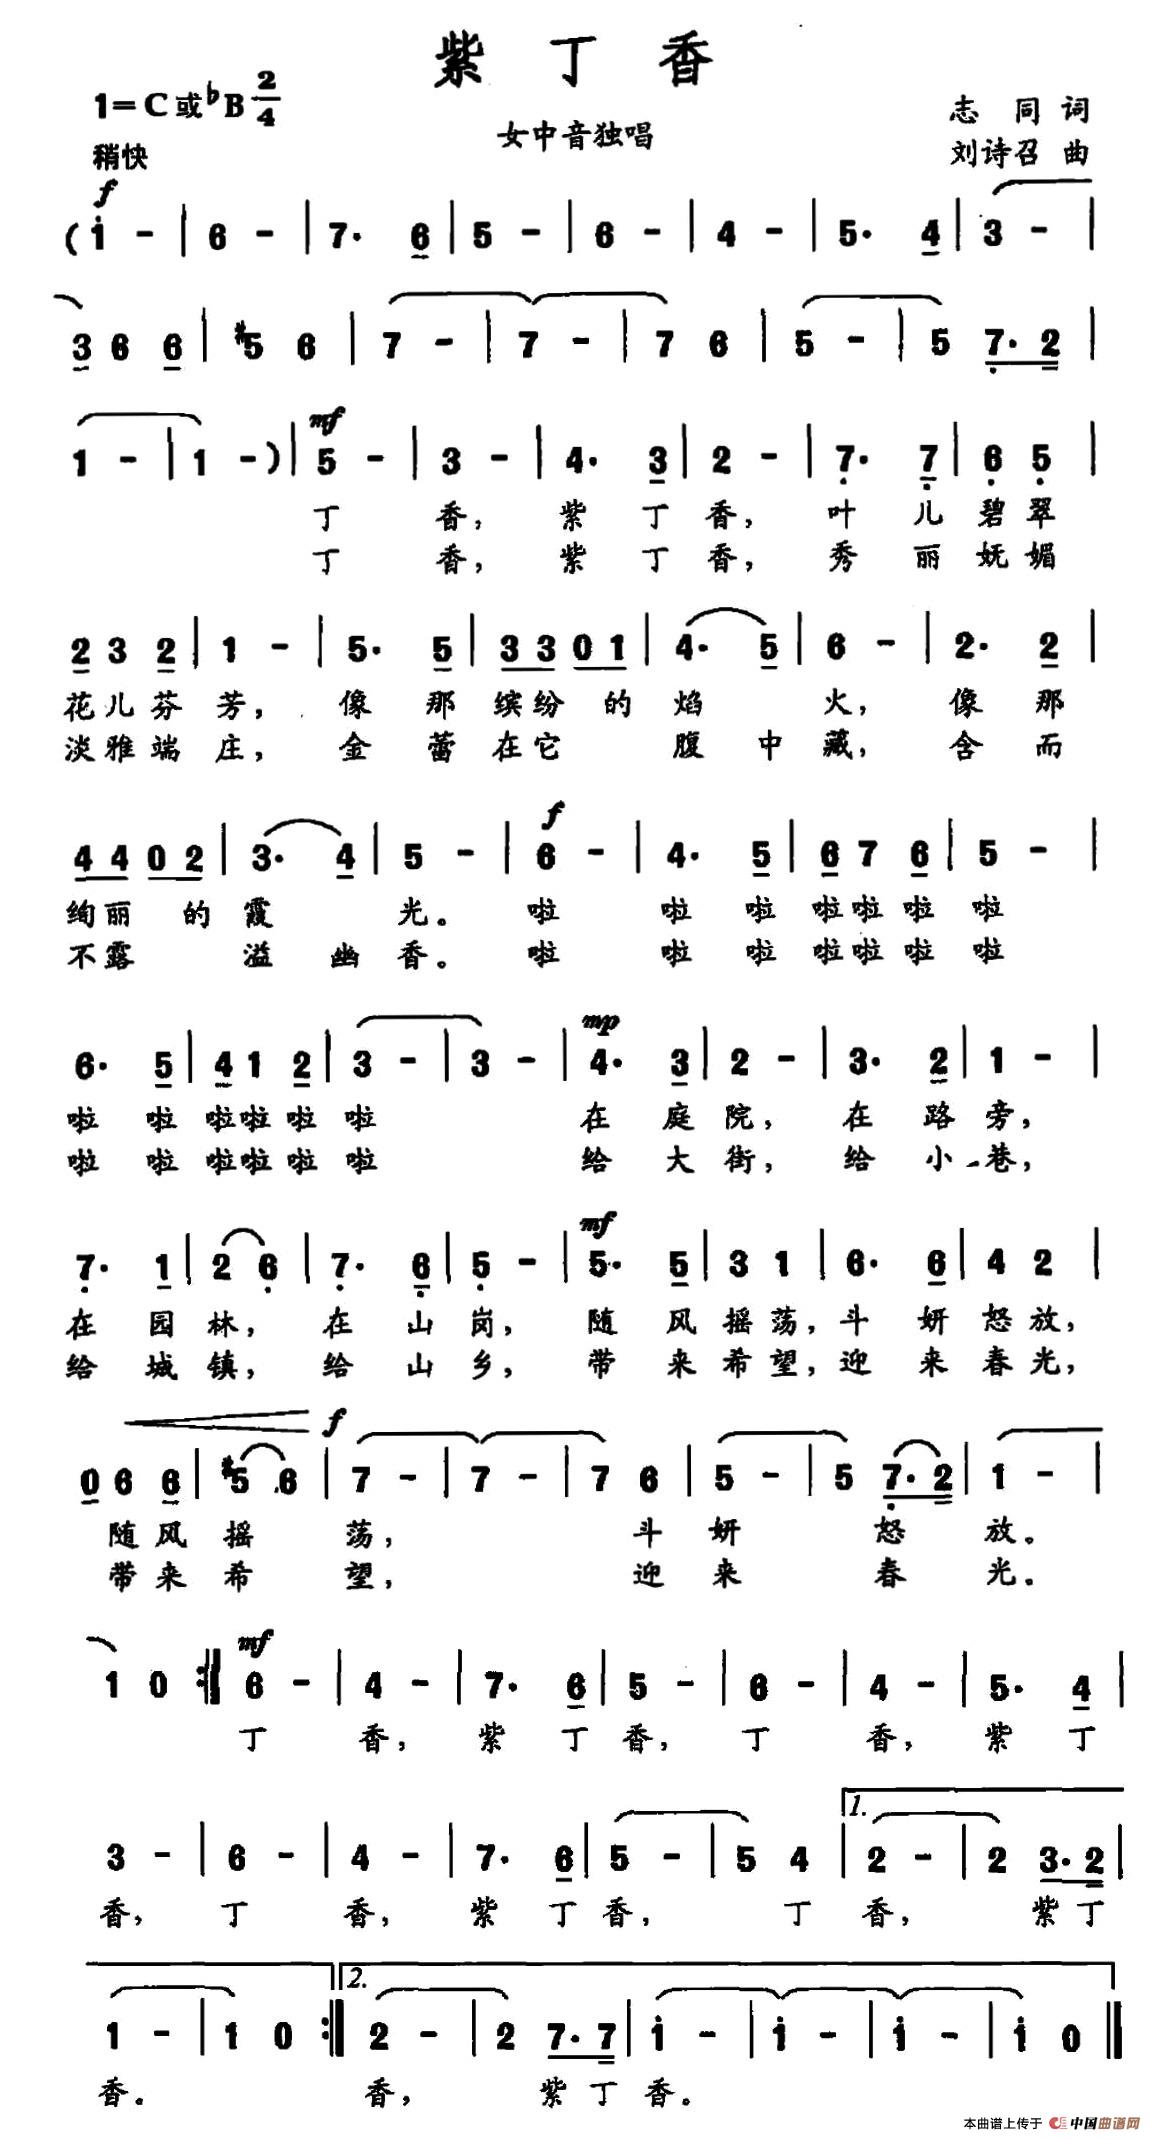 紫丁香
1=C或♭B 2/4
女中音独唱
志同 词
稍快
刘诗召 曲
f
(i - | 6 - | 7. 6 | 5 - | 6 - | 4 - | 5. 4 | 3 - |
3 6 6 | #5 6 | 7 - | 7 - | 7 6 | 5 - | 5 7. 2 |
mf
1 - | 1 -) | 5 - | 3 - | 4. 3 | 2 - | 7. 7 | 6 5 |
丁 香, 紫 丁 香, 叶 儿 碧 翠
丁 香, 紫 丁 香, 秀 丽 妩 媚
2 3 2 | 1 - | 5. 5 | 3 3 0 1 | 4. 5 | 6 - | 2. 2 |
花 儿 芬 芳, 像 那 缤 纷 的 焰 火, 像 那
淡 雅 端 庄, 金 蕾 在 它 腹 中 藏, 含 而
f
4 4 0 2 | 3. 4 | 5 - | 6 - | 4. 5 | 6 7 6 | 5 - |
绚 丽 的 霞 光。 啦 啦 啦 啦 啦 啦 啦
不 露 溢 幽 香。 啦 啦 啦 啦 啦 啦 啦
mp
6. 5 | 4 1 2 | 3 - | 3 - | 4. 3 | 2 - | 3. 2 | 1 - |
啦 啦 啦 啦 啦 啦 在 庭 院, 在 路 旁,
啦 啦 啦 啦 啦 啦 给 大 街, 给 小 巷,
mf
7. 1 | 2 6 | 7. 6 | 5 - | 5. 5 | 3 1 | 6. 6 | 4 2 |
在 园 林, 在 山 岗, 随 风 摇 荡, 斗 妍 怒 放,
给 城 镇, 给 山 乡, 带 来 希 望, 迎 来 春 光,
f
0 6 6 | #5 6 | 7 - | 7 - | 7 6 | 5 - | 5 7. 2 | 1 - |
随 风 摇 荡, 斗 妍 怒 放。
带 来 希 望, 迎 来 春 光。
mf
1 0 :| 6 - | 4 - | 7. 6 | 5 - | 6 - | 4 - | 5. 4 |
丁 香, 紫 丁 香, 丁 香, 紫 丁
1.
3 - | 6 - | 4 - | 7. 6 | 5 - | 5 4 | 2 - | 2 3. 2 |
香, 丁 香, 紫 丁 香, 丁 香, 紫 丁
2.
1 - | 1 0 :| 2 - | 2 7. 7 | i - | i - | i - | i 0 ||
香。 香, 紫 丁 香。
本曲谱上传于 中国曲谱网